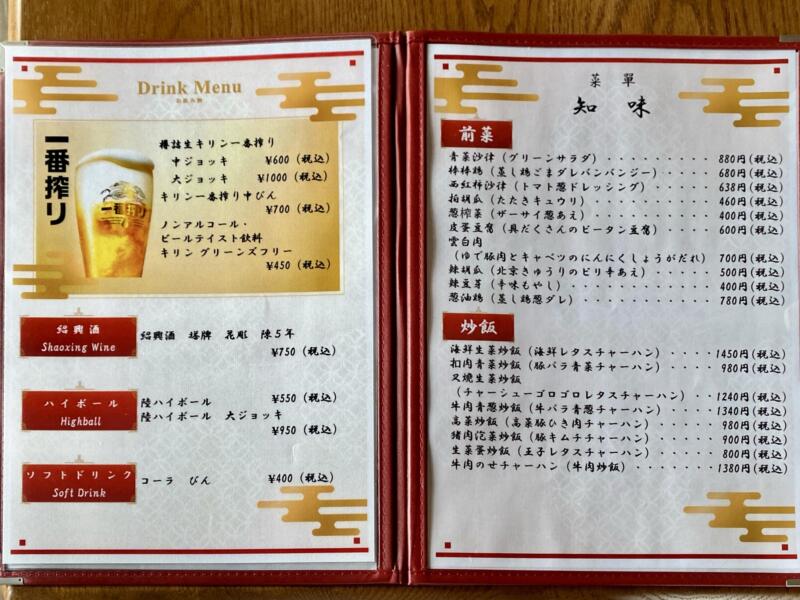 Drink Menu
お飲み物
一番搾り
一番搾り
樽詰生キリン一番搾り
中ジョッキ ¥600（税込）
大ジョッキ ¥1000（税込）
キリン一番搾り中びん
¥700（税込）
ノンアルコール・
ビールテイスト飲料
キリン グリーンズフリー
¥450（税込）
紹興酒
Shaoxing Wine
紹興酒 塔牌 花彫 陳５年
¥750（税込）
ハイボール
Highball
陸ハイボール ¥550（税込）
陸ハイボール 大ジョッキ
¥950（税込）
ソフトドリンク
Soft Drink
コーラ びん ¥400（税込）
菜單
知味
前菜
青菜沙律（グリーンサラダ）・・・・・・・・・880円(税込)
棒棒鶏（蒸し鶏ごまダレバンバンジー）・・・・・680円(税込)
西紅柿沙律（トマト葱ドレッシング）・・・・・・638円(税込)
拍胡瓜（たたきキュウリ）・・・・・・・・・・460円(税込)
葱榨菜（ザーサイ葱あえ）・・・・・・・・・・400円(税込)
皮蛋豆腐（具だくさんのピータン豆腐）・・・・・600円(税込)
雲白肉
（ゆで豚肉とキャベツのにんにくしょうがだれ）700円(税込)
辣胡瓜（北京きゅうりのピリ辛あえ）・・・・・・500円(税込)
辣豆芽（辛味もやし）・・・・・・・・・・・・400円(税込)
葱油鶏（蒸し鶏葱ダレ）・・・・・・・・・・・780円(税込)
炒飯
海鮮生菜炒飯（海鮮レタスチャーハン）・・・・1450円(税込)
扣肉青菜炒飯（豚バラ青菜チャーハン）・・・・・980円(税込)
叉焼生菜炒飯
（チャーシューゴロゴロレタスチャーハン）・・1240円(税込)
牛肉青葱炒飯（牛バラ青葱チャーハン）・・・・1340円(税込)
高菜炒飯（高菜豚ひき肉チャーハン）・・・・・・980円(税込)
猪肉泡菜炒飯（豚キムチチャーハン）・・・・・・900円(税込)
生菜蛋炒飯（玉子レタスチャーハン）・・・・・・800円(税込)
牛肉のせチャーハン（牛肉炒飯）・・・・・・・1380円(税込)